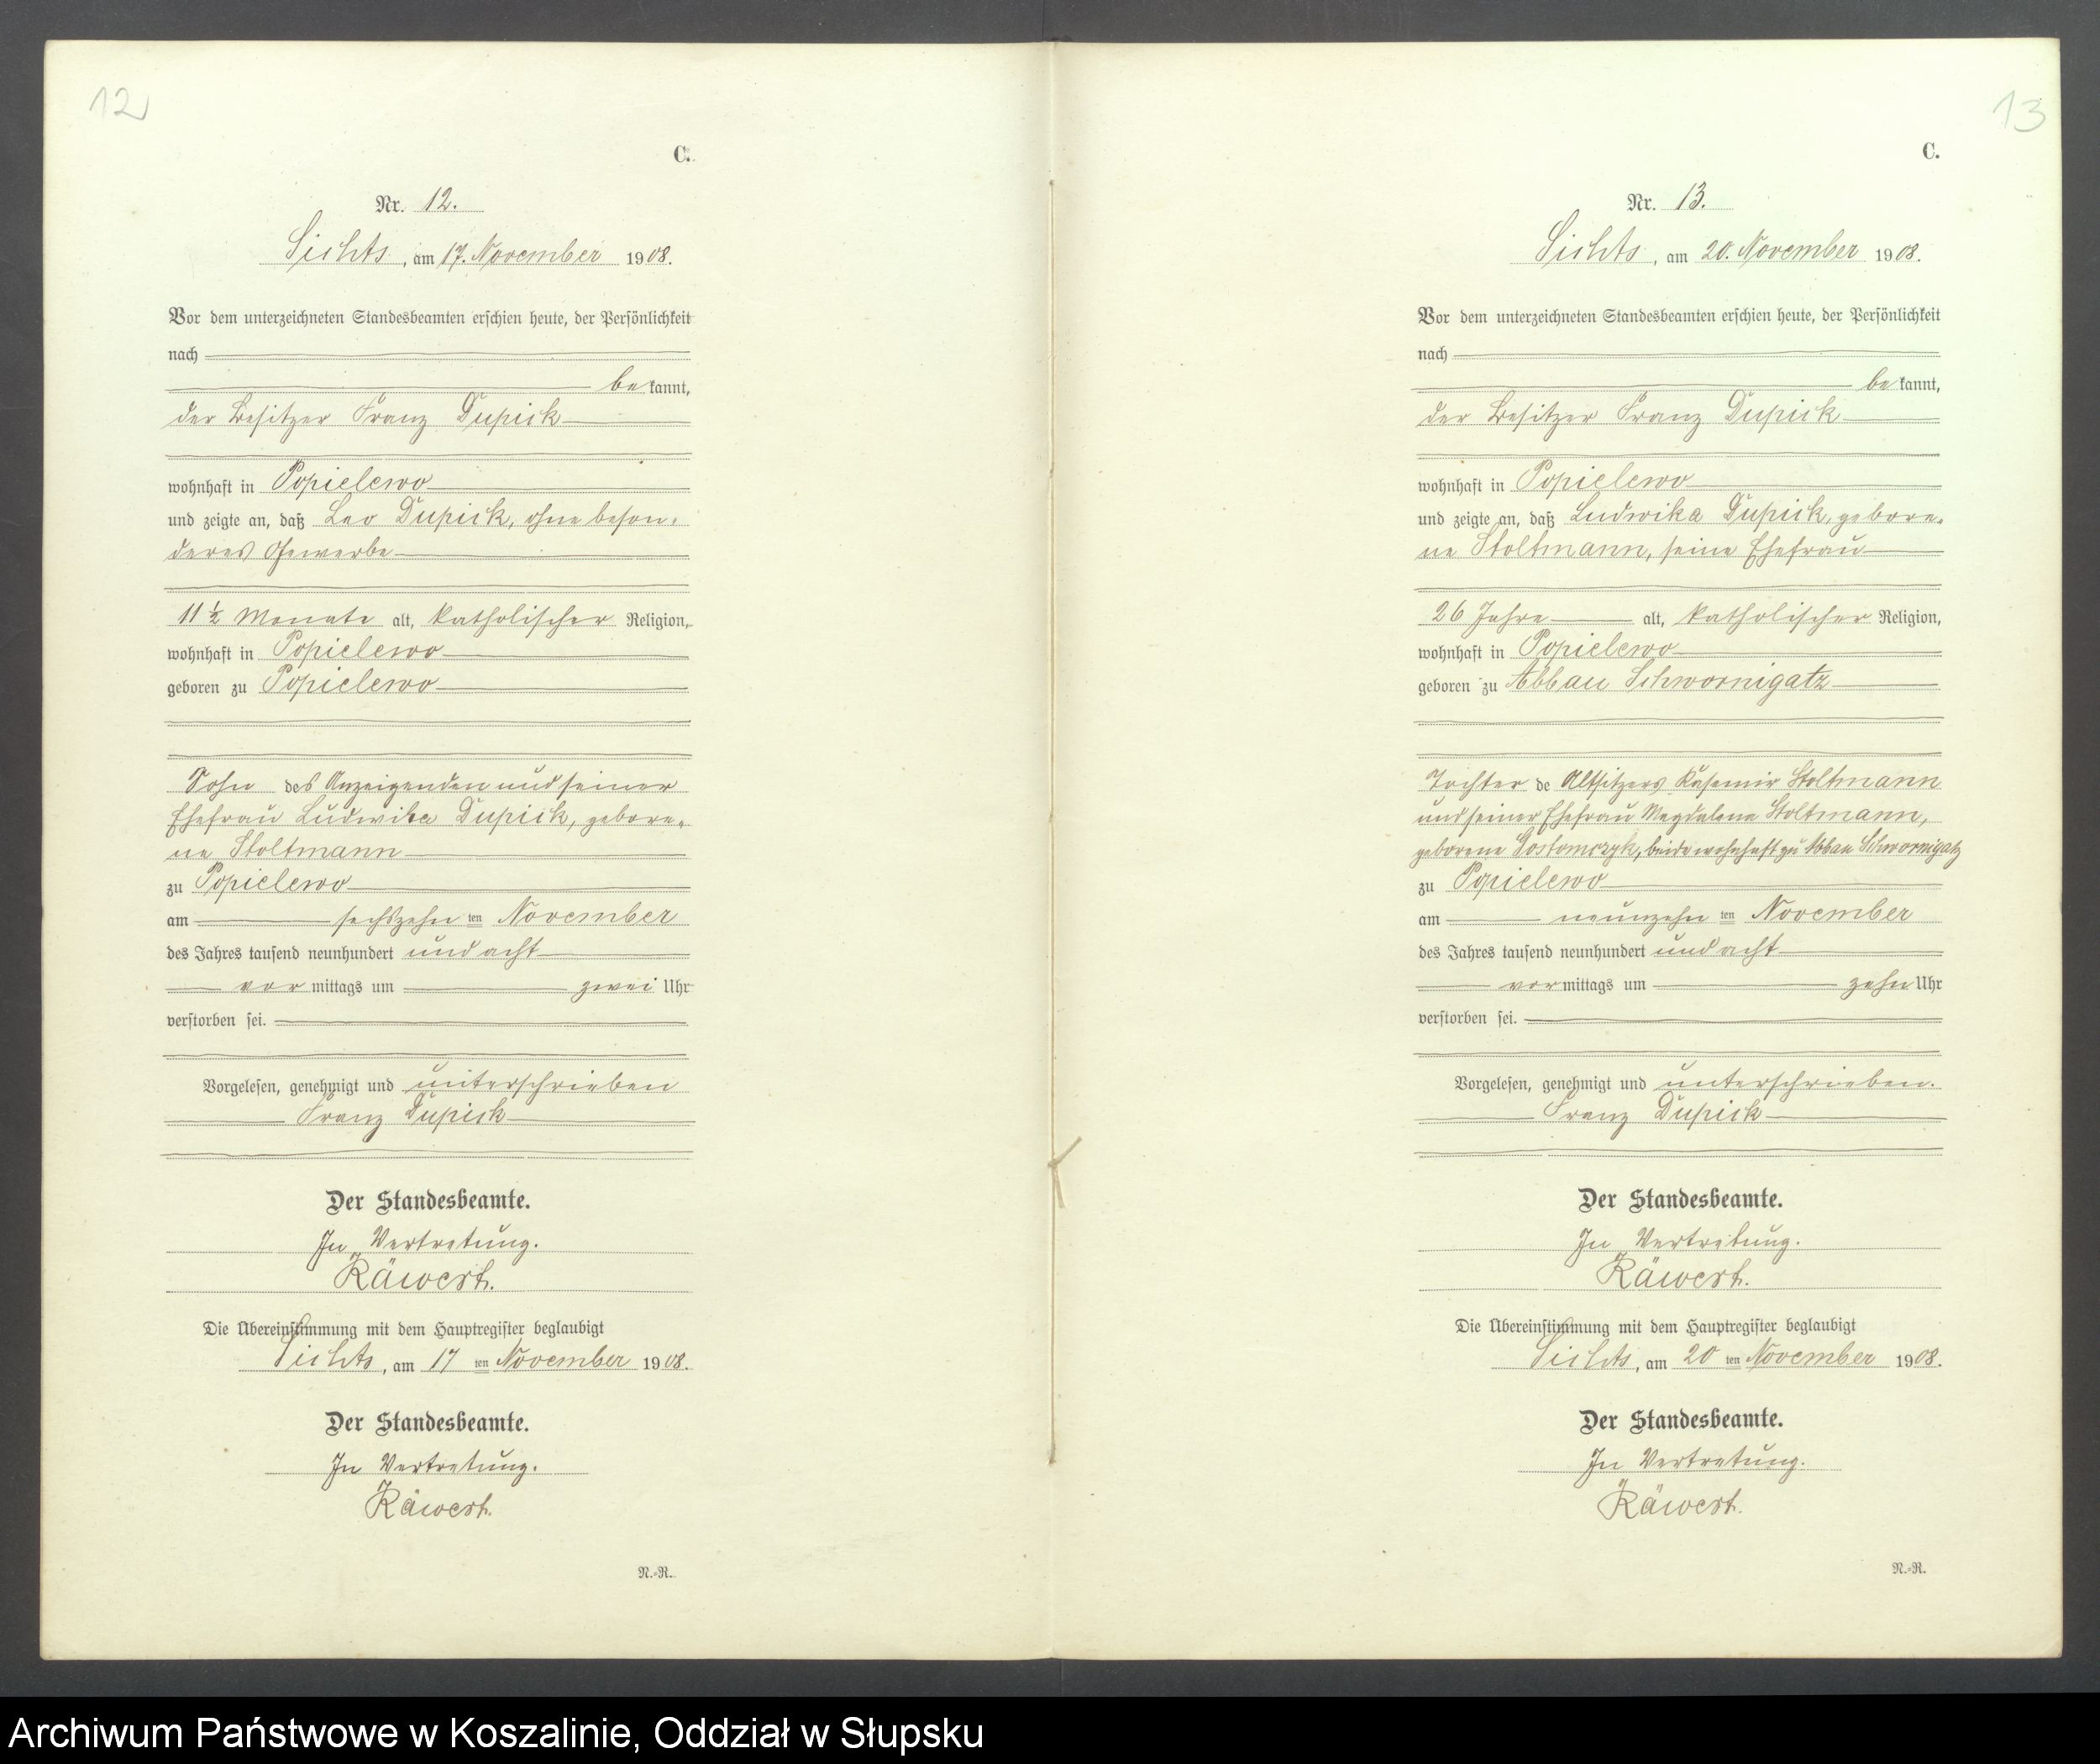 12
C.
Nr. 12.
Sichts, am 17. November 1908.
Vor dem unterzeichneten Standesbeamten erschien heute, der Persönlichkeit
nach
bekannt,
der Besitzer Franz Dupick
wohnhaft in Popielewo
und zeigte an, daß Leo Dupick, ohne beson-
deres Gewerbe
11 ½ Monate alt, katholischer Religion,
wohnhaft in Popielewo
geboren zu Popielewo
Sohn des Anzeigenden und seiner
Ehefrau Ludwika Dupick, gebore-
ne Stoltmann
zu Popielewo
am sechszehnten November
des Jahres tausend neunhundert und acht
vormittags um zwei Uhr
verstorben sei.
Vorgelesen, genehmigt und unterschrieben
Franz Dupick
Der Standesbeamte.
In Vertretung.
Räwert.
Die Übereinstimmung mit dem Hauptregister beglaubigt
Sichts, am 17ten November 1908.
Der Standesbeamte.
In Vertretung.
Räwert.
N.-R.
13
C.
Nr. 13.
Sichts, am 20. November 1908.
Vor dem unterzeichneten Standesbeamten erschien heute, der Persönlichkeit
nach
bekannt,
der Besitzer Franz Dupick
wohnhaft in Popielewo
und zeigte an, daß Ludwika Dupick, gebore-
ne Stoltmann, seine Ehefrau
26 Jahre alt, katholischer Religion,
wohnhaft in Popielewo
geboren zu Abbau Schwornigatz
Tochter de Altsitzers Kasemir Stoltmann
und seiner Ehefrau Magdalena Stoltmann,
geborene Gostomczyk, beide wohnhaft zu Abbau Schwornigatz
zu Popielewo
am neunzehnten November
des Jahres tausend neunhundert und acht
vormittags um zehn Uhr
verstorben sei.
Vorgelesen, genehmigt und unterschrieben.
Franz Dupick
Der Standesbeamte.
In Vertretung.
Räwert.
Die Übereinstimmung mit dem Hauptregister beglaubigt
Sichts, am 20ten November 1908.
Der Standesbeamte.
In Vertretung.
Räwert.
N.-R.
Archiwum Państwowe w Koszalinie, Oddział w Słupsku